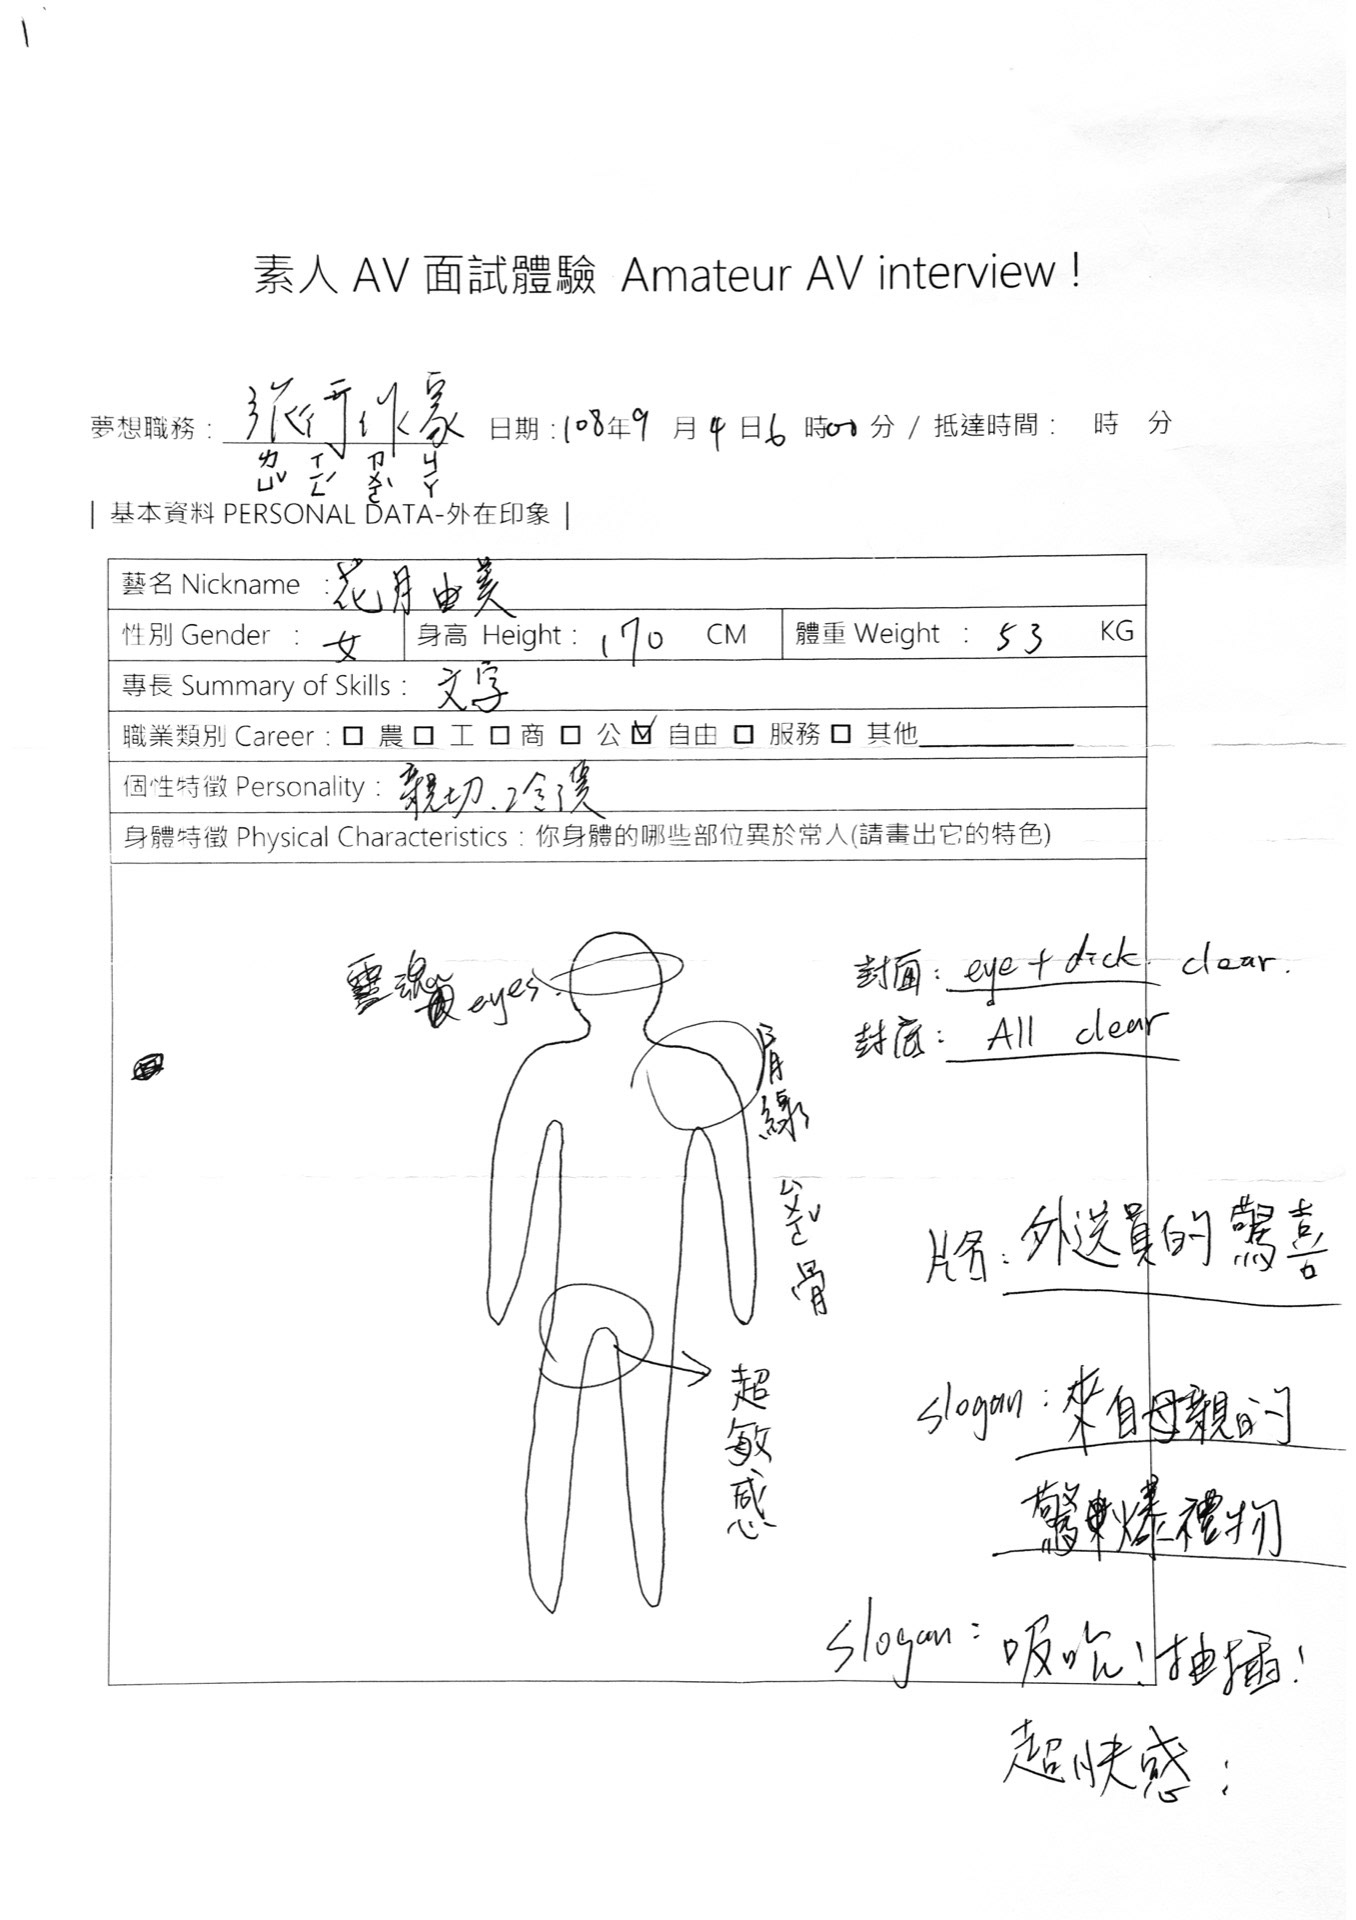 1
素人 AV 面試體驗 Amateur AV interview !
夢想職務 : 旅行作家 日期 : 108年9月4日6時00分 / 抵達時間 : 時 分
ㄌㄩˇ ㄒㄧㄥˊ ㄗㄨㄛˋ ㄐㄧㄚ
| 基本資料 PERSONAL DATA-外在印象 |
藝名 Nickname : 花月由美
性別 Gender : 女 身高 Height : 170 CM 體重 Weight : 53 KG
專長 Summary of Skills : 文字
職業類別 Career : □ 農 □ 工 □ 商 □ 公 ☑ 自由 □ 服務 □ 其他
個性特徵 Personality : 親切、冷漠
身體特徵 Physical Characteristics : 你身體的哪些部位異於常人(請畫出它的特色)
靈魂 eyes.
封面 : eye + dick. clear.
封底 : All clear
肩線
ㄙㄨㄛˇ骨
片名 : 外送員的驚喜
超敏感
slogan : 來自母親的
驚爆禮物
slogan : 吸吮! 抽插!
超快感 :